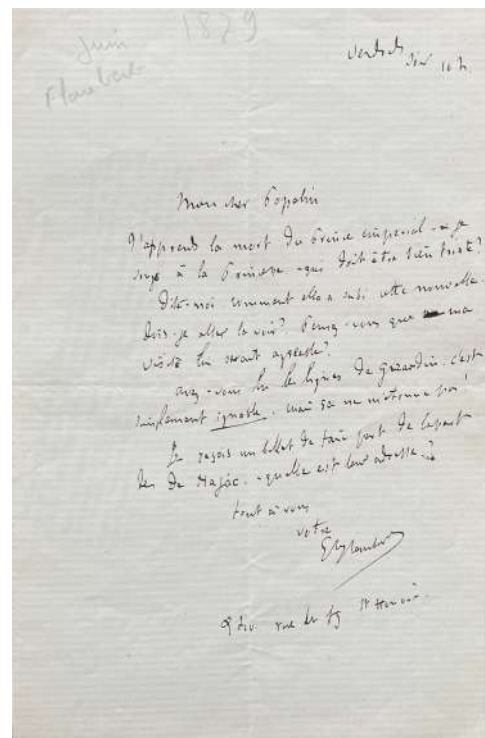 Juin 1879
Flaubert
Vendredi soir 10 h.
Mon cher Popelin
J'apprends la mort du Prince impérial - et je
songe à la Princesse - qui doit être bien triste?
Dites-moi comment elle a subi cette nouvelle.
Dois-je aller la voir? Pensez-vous que ma
visite lui serait agréable?
avez-vous lu les lignes de Girardin. c'est
simplement ignoble. mais ça ne m'étonne pas!
Je reçois un billet de faire part de la part
des De . quelle est leur adresse?
tout à vous
votre
Gve Flaubert
240. rue du fg St Honoré.